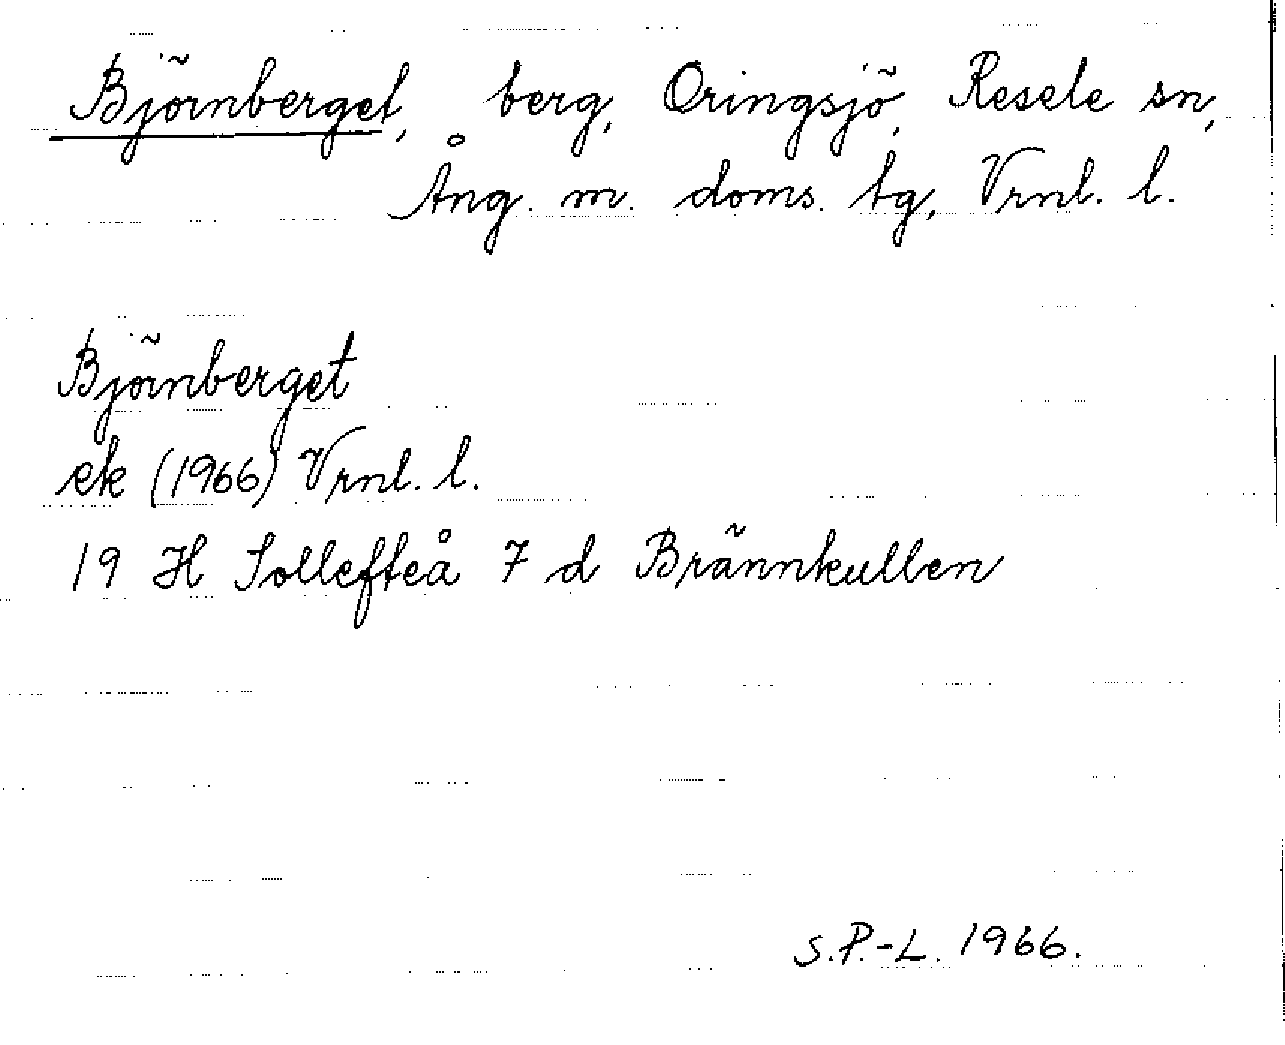 Björnberget, berg, Oringsjö, Resele sn,
Ång. m. doms. tg, Vrnl. l.
Björnberget
ek (1966) Vrnl. l.
19 H Sollefteå 7 d Brännkullen
S.P.-L. 1966.